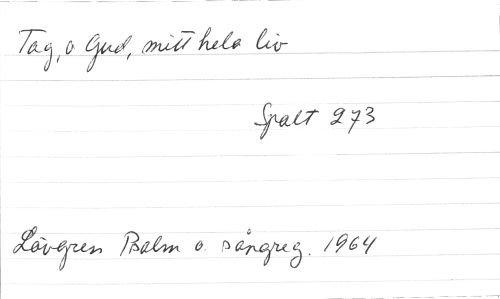 Tag, o Gud, mitt hela liv
Spalt 273
Lövgren Psalm o. sångreg. 1964